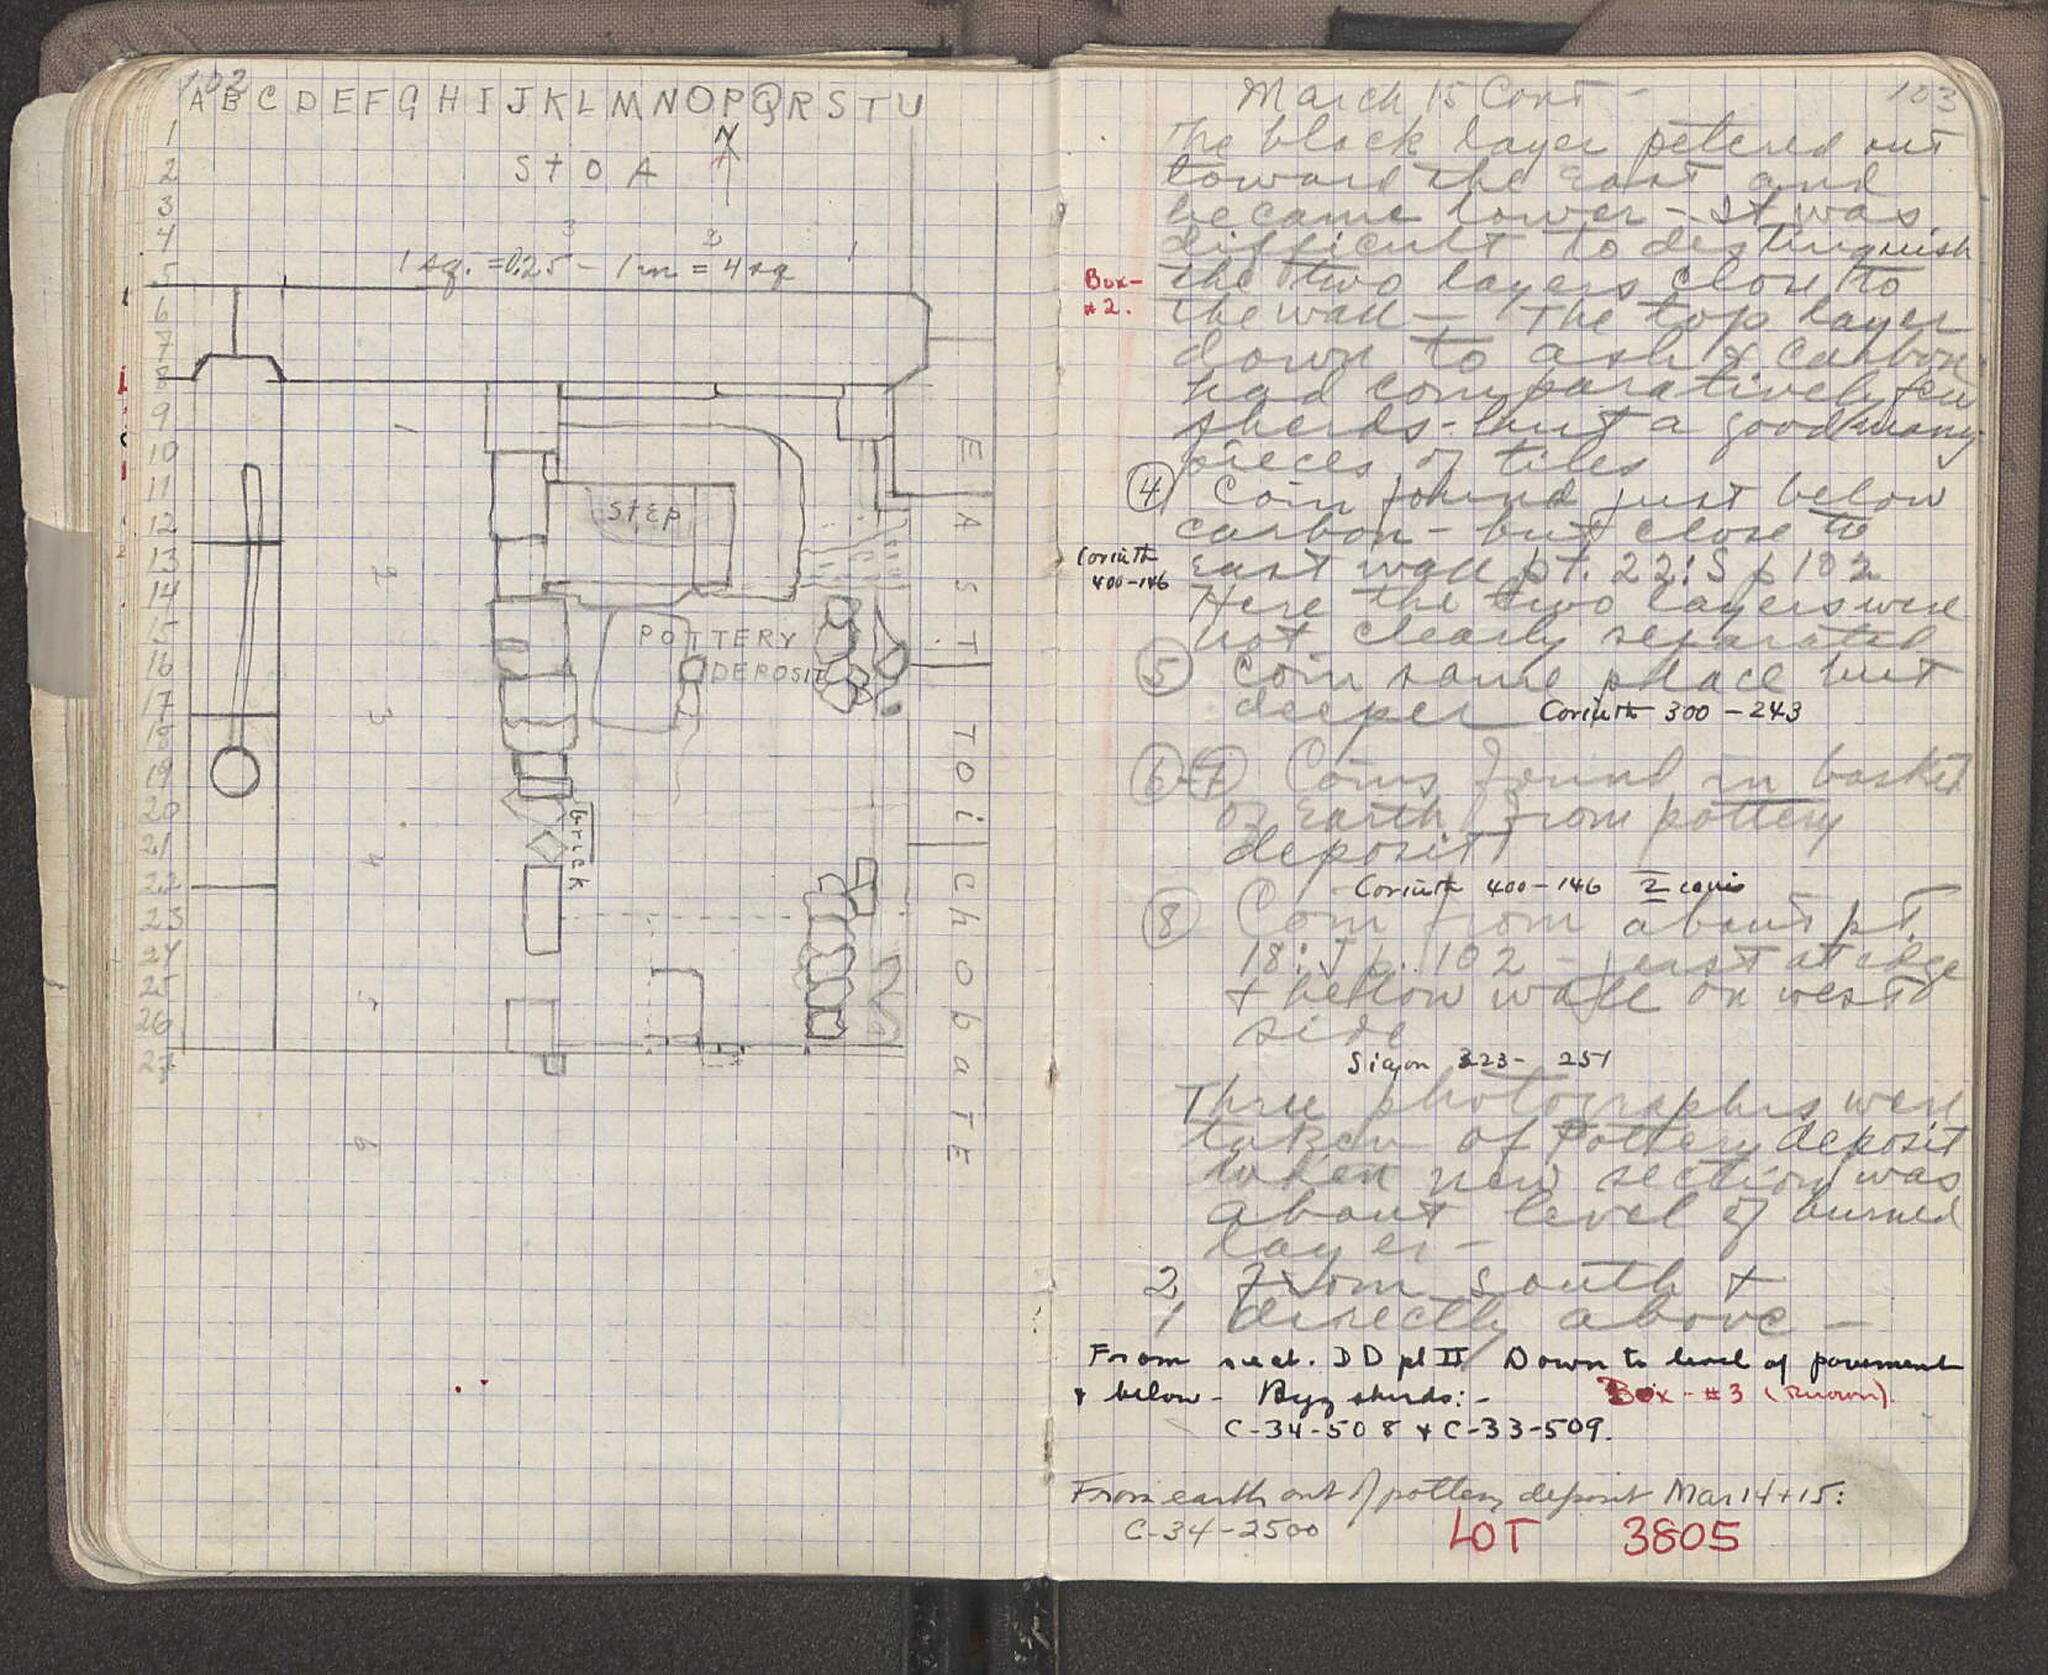 102
A B C D E F G H I J K L M N O P Q R S T U
N
1
2
3
4
5
6
7
8
9
10
11
12
13
14
15
16
17
18
19
20
21
22
23
24
25
26
27
STOA
3 3 1
1 sq. = 0.25 - 1 m = 4 sq
1
2
3
4
5
6
STEP
POTTERY
DEPOSIT
brick
EAST TOiChObaTE
March 15 Cont - 103
The black layer petered out
toward the East and
became lower - It was
difficult to destinguish
Box-
#2.
the two layers close to
the wall - The top layer
down to ash & carbon
had comparatively few
sherds - but a good many
pieces of tiles
④ Coin found just below
carbon - but close to
Corinth
400-146
East wall pt. 22:S p 102
Here the two layers were
not clearly separated
⑤ Coin same place but
deeper Corinth 300-243
⑥-⑦ Coins found in basket
of Earth from pottery
deposit
Corinth 400-146 2 coins
⑧ Coin from about pt.
18:J p. 102 - just at edge
+ below wall on west
side
Sicyon 323-251
Three photographs were
taken of Pottery deposit
when new section was
about level of burned
layer -
2 From South +
1 directly above -
From sect. DD pl II Down to level of pavement
& below - Byz sherds:-
Box - #3 (thrown).
C-34-508 & C-33-509.
From earth out of pottery deposit Mar 14+15:
C-34-2500
LOT 3805